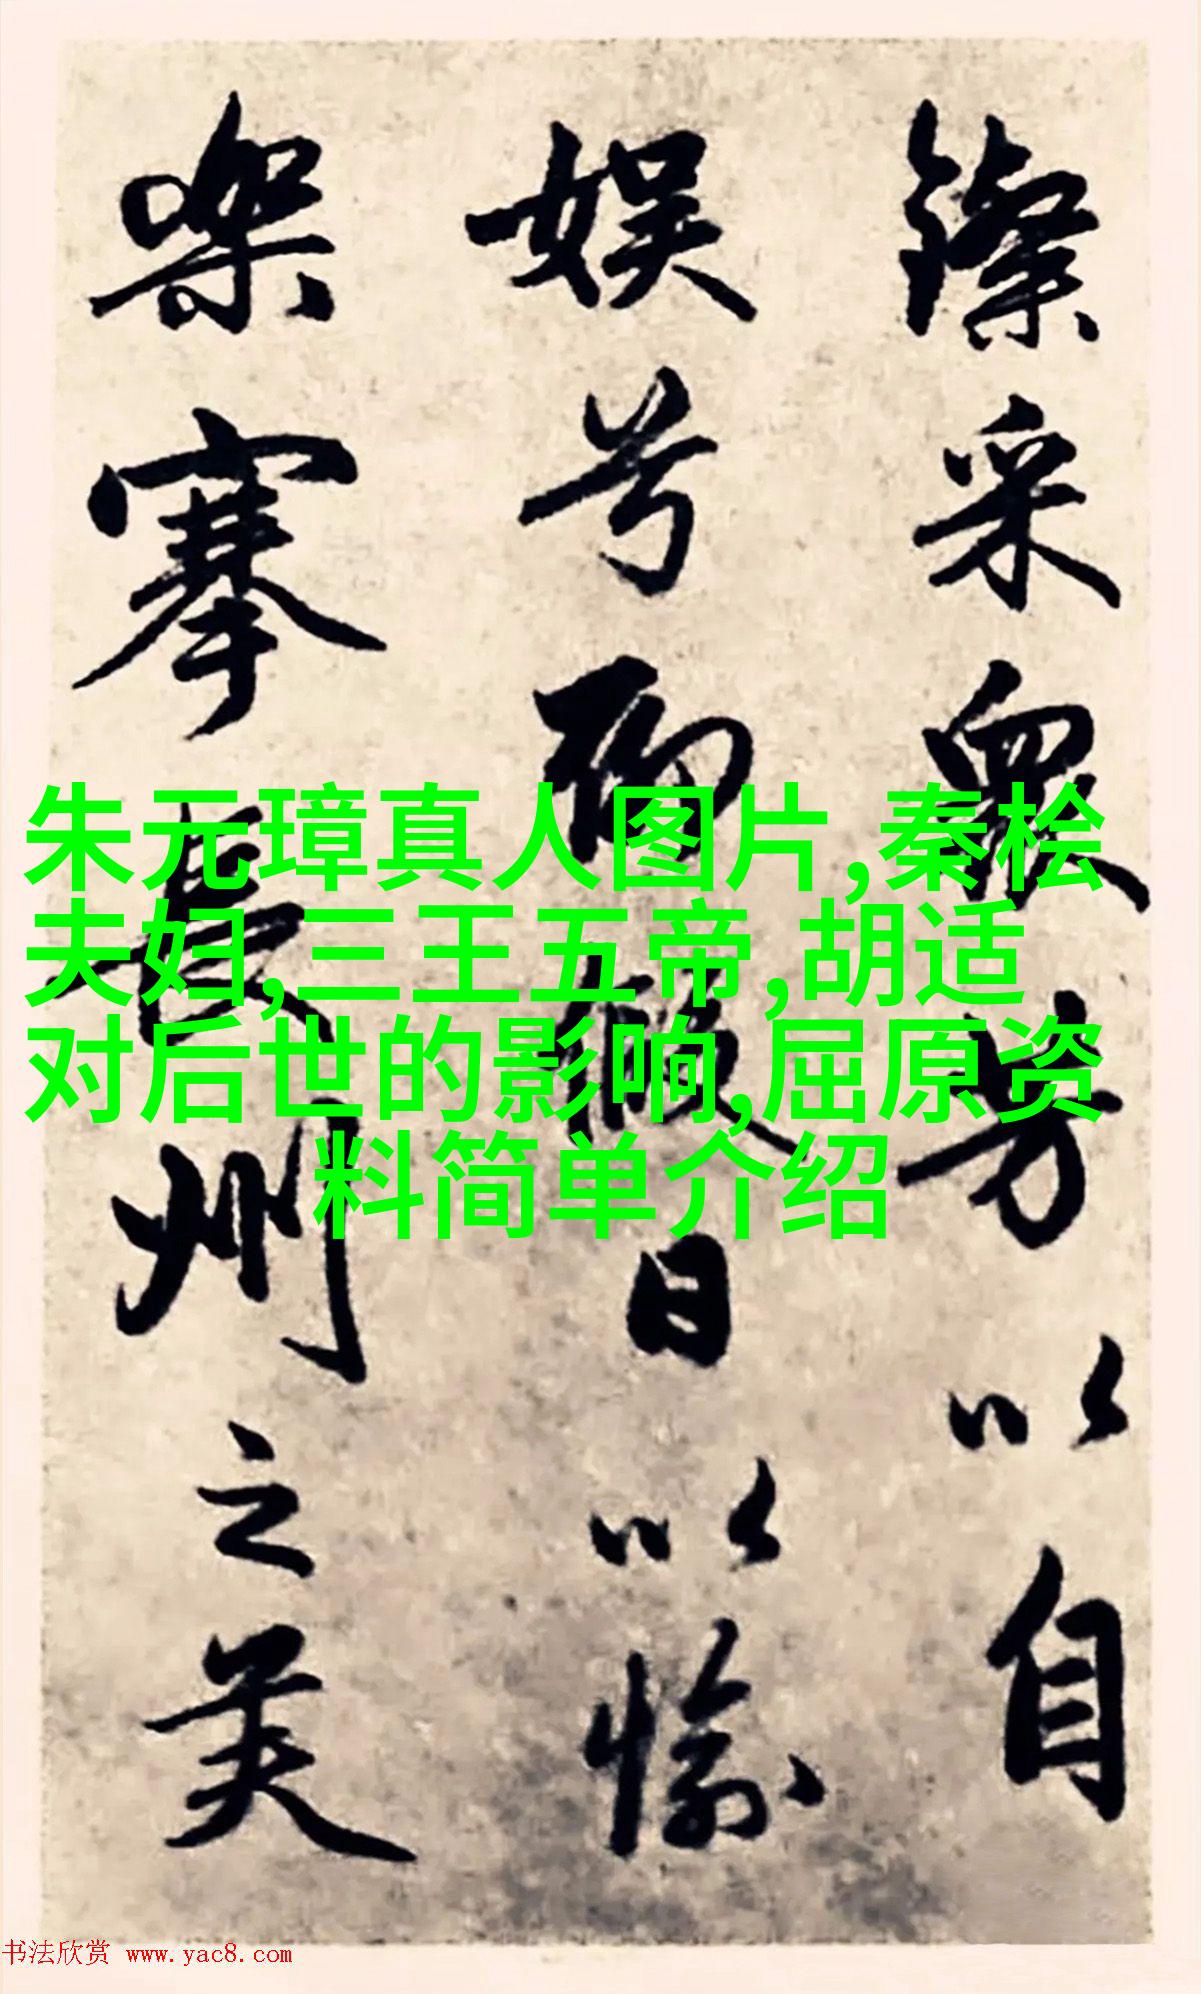 鑗采众芳以自
娱兮聊假日以愉
乐搴长州之美
朱元璋真人图片,秦桧
夫妇,三王五帝,胡适
对后世的影响,屈原资
料简单介绍
书法欣赏 www.yac8.com